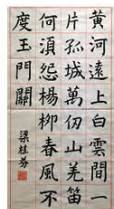 黃河遠上白雲間一
片孤城萬仞山羌笛
何須怨楊柳春風不
度玉門關
梁桂芬